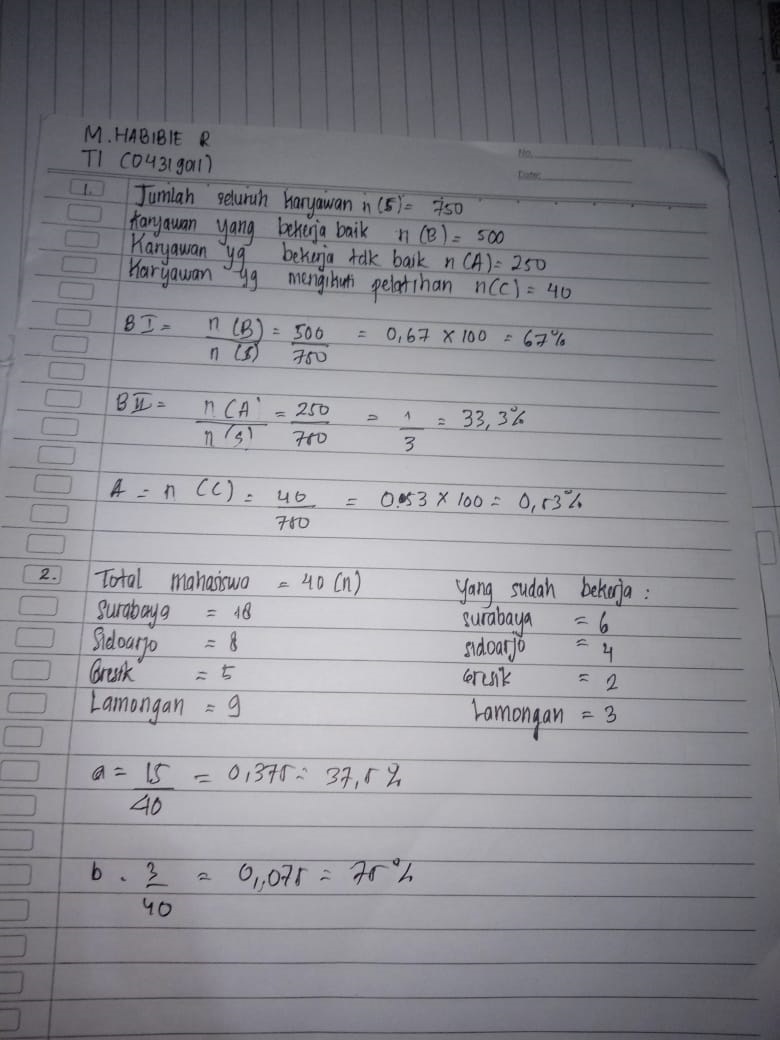 M. HABIBIE R
TI (04319011)
No.
Date:
1. Jumlah seluruh karyawan n(S) = 750
Karyawan yang bekerja baik n (B) = 500
Karyawan yg bekerja tdk baik n (A) = 250
Karyawan yg mengikuti pelatihan n(C) = 40
B I = n (B) / n (S) = 500 / 750 = 0,67 × 100 = 67%
B II = n (A) / n (S) = 250 / 750 = 1 / 3 = 33,3%
A = n (C) = 40 / 750 = 0.053 × 100 = 0,53%
2. Total mahasiswa = 40 (n) Yang sudah bekerja :
Surabaya = 18 surabaya = 6
Sidoarjo = 8 sidoarjo = 4
Gresik = 5 Gresik = 2
Lamongan = 9 Lamongan = 3
a = 15 / 40 = 0,375 = 37,5%
b. 3 / 40 = 0,075 = 75%